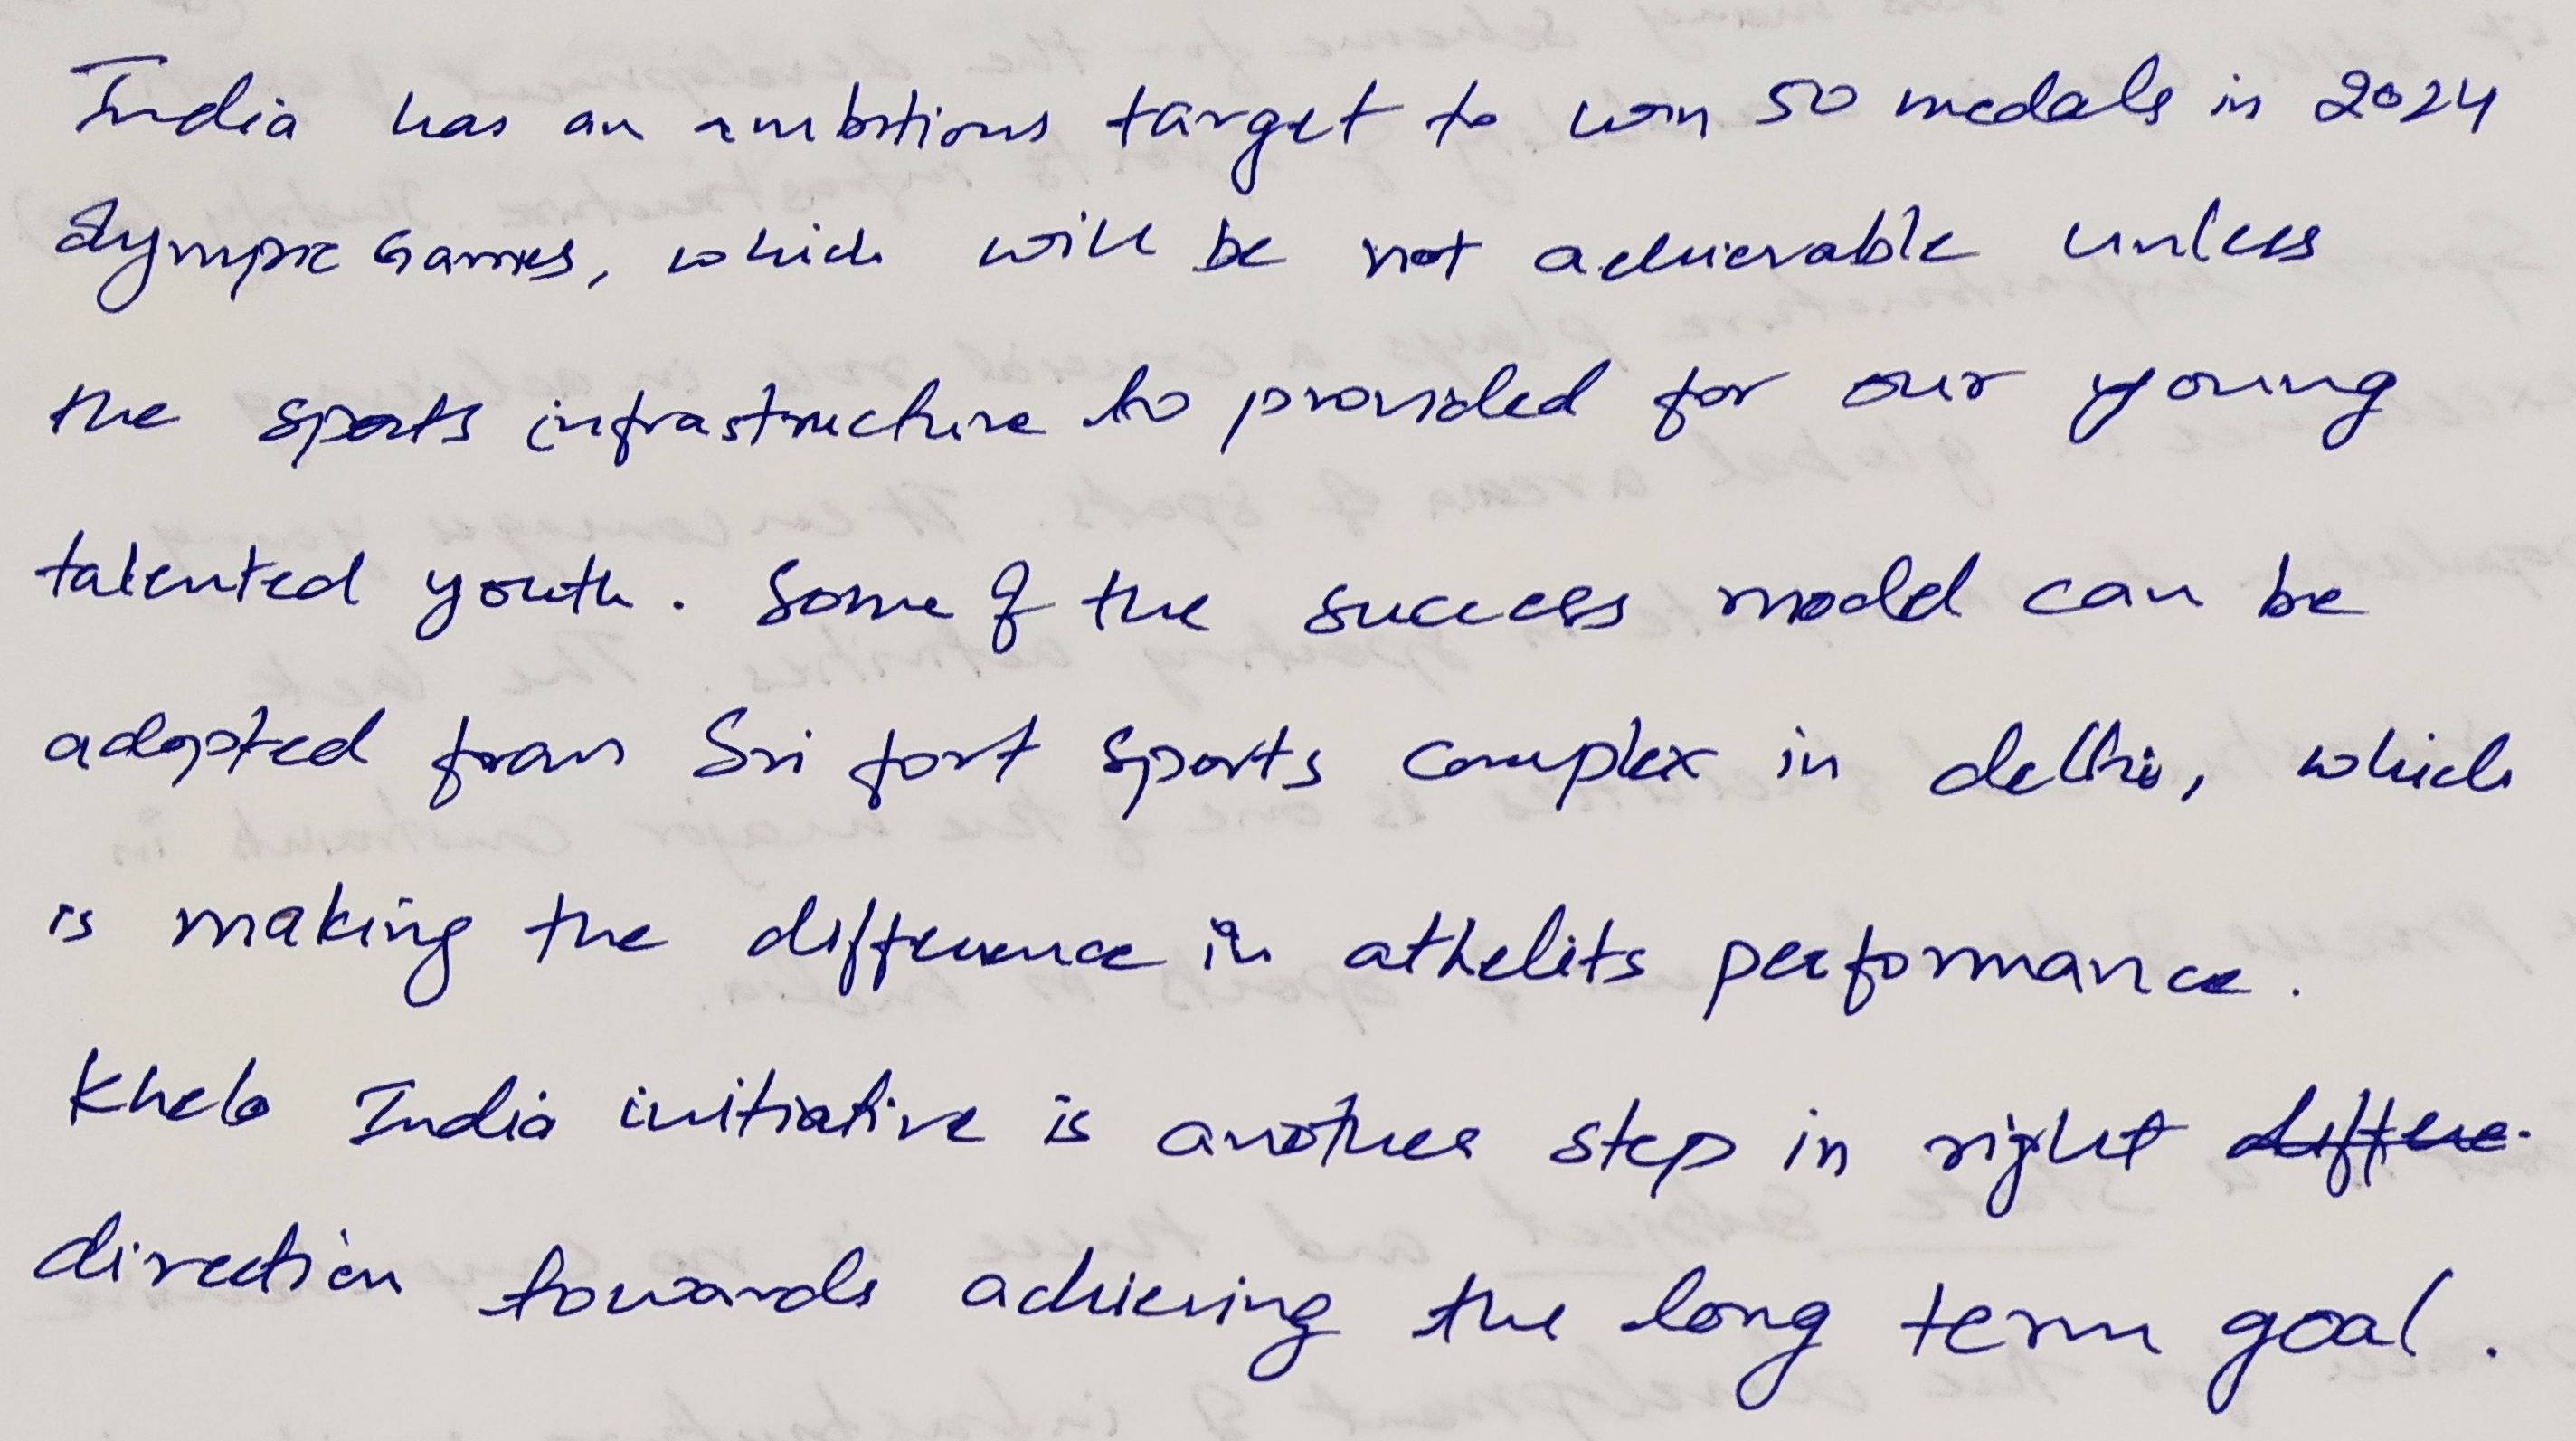 India has an ambitious target to win 50 medals in 2024
Olympic Games, which will be not achievable unless
the sports infrastructure to provided for our young
talented youth. Some of the success model can be
adopted from Sri fort Sports complex in delhi, which
is making the difference in athelits performance.
Khelo India initiative is another step in right differe
direction towards achieving the long term goal.